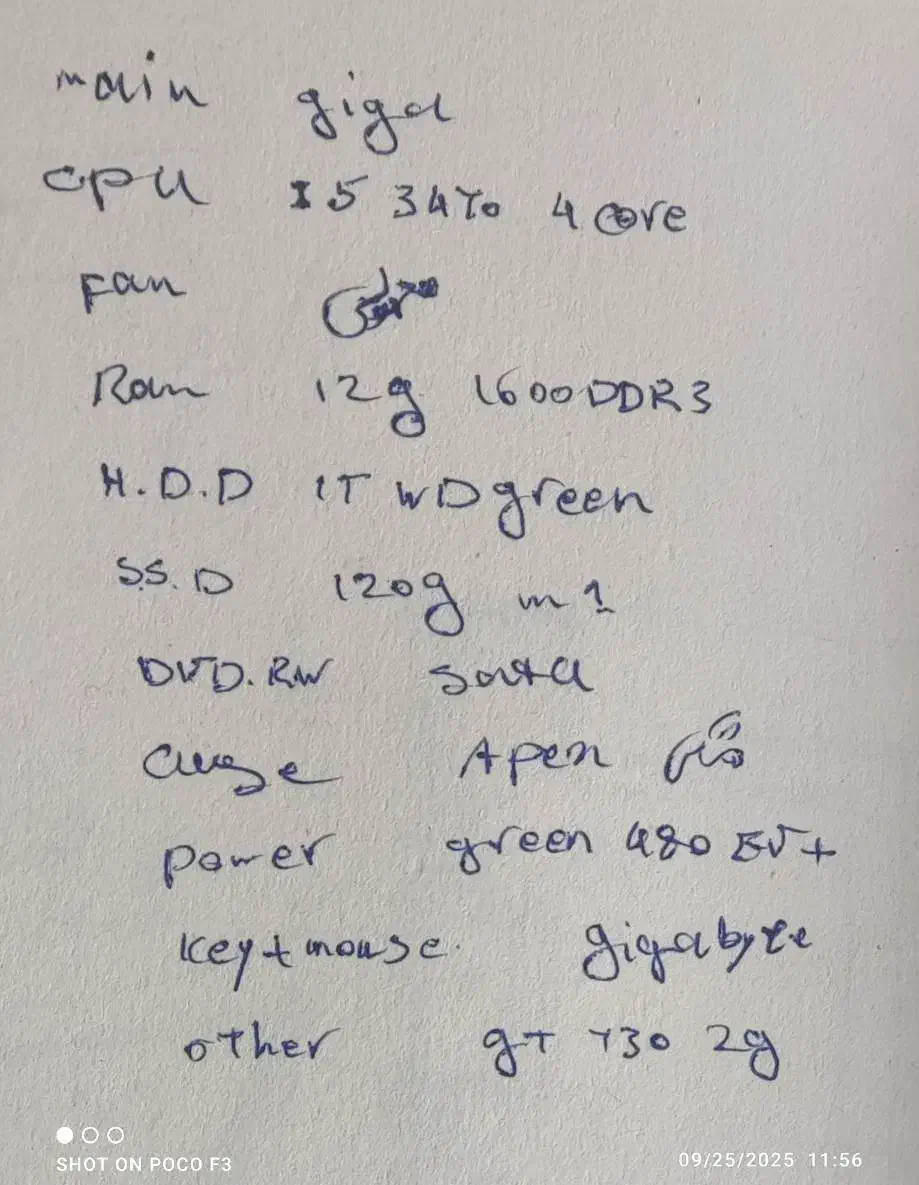 main giga
cpu I5 3470 4 core
Fan
Ram 12g 1600 DDR3
H.D.D 1T WD green
S.S.D 120g m 2
DVD.RW Sata
Apex
power green 480 EV+
key+mouse. gigabyte
other gt 730 2g
SHOT ON POCO F3
09/25/2025 11:56